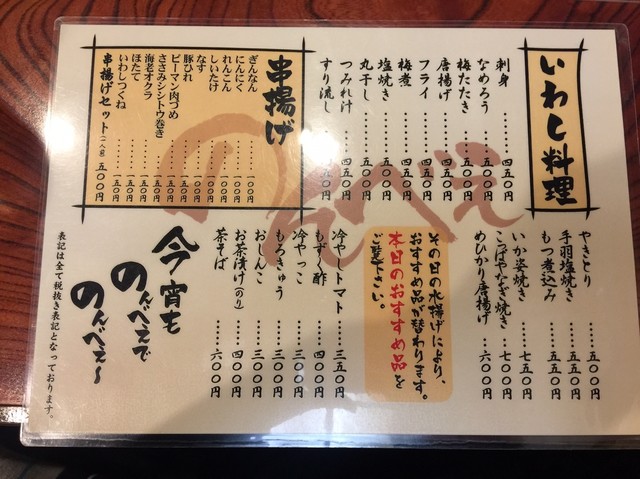 いわし料理
刺身………四五〇円
なめろう……五〇〇円
梅たたき……五〇〇円
唐揚げ………四五〇円
フライ………四五〇円
梅煮…………四五〇円
塩焼き………五〇〇円
丸干し………五〇〇円
つみれ汁……四五〇円
すり流し
串揚げ
ぎんなん………一〇〇円
にんにく………一〇〇円
れんこん………一〇〇円
しいたけ………一〇〇円
なす……………一〇〇円
豚ひれ…………一五〇円
ピーマン肉づめ…一五〇円
ささみシシトウ巻き…一五〇円
海老オクラ……一五〇円
ほたて…………一五〇円
いわしつくね…一五〇円
串揚げセット(一人前)五〇〇円
のんべえ
やきとり………五〇〇円
手羽塩焼き……五五〇円
もつ煮込み……五五〇円
いか姿焼き……七五〇円
こっぱやなぎ焼き…七〇〇円
めひかり唐揚げ…六〇〇円
その日の水揚げにより、
おすすめ品が替わります。
本日のおすすめ品を
ご覧下さい。
冷やしトマト…三五〇円
もずく酢………四〇〇円
冷やっこ………三〇〇円
もろきゅう……三〇〇円
おしんこ………三〇〇円
お茶漬け(のり)…四〇〇円
茶そば…………六〇〇円
今宵も
のんべえで
のんべえ〜
表記は全て税抜き表記となっております。